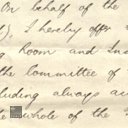 On behalf of the
I hereby offer
Room and
the Committee of
cluding always
the whole of the